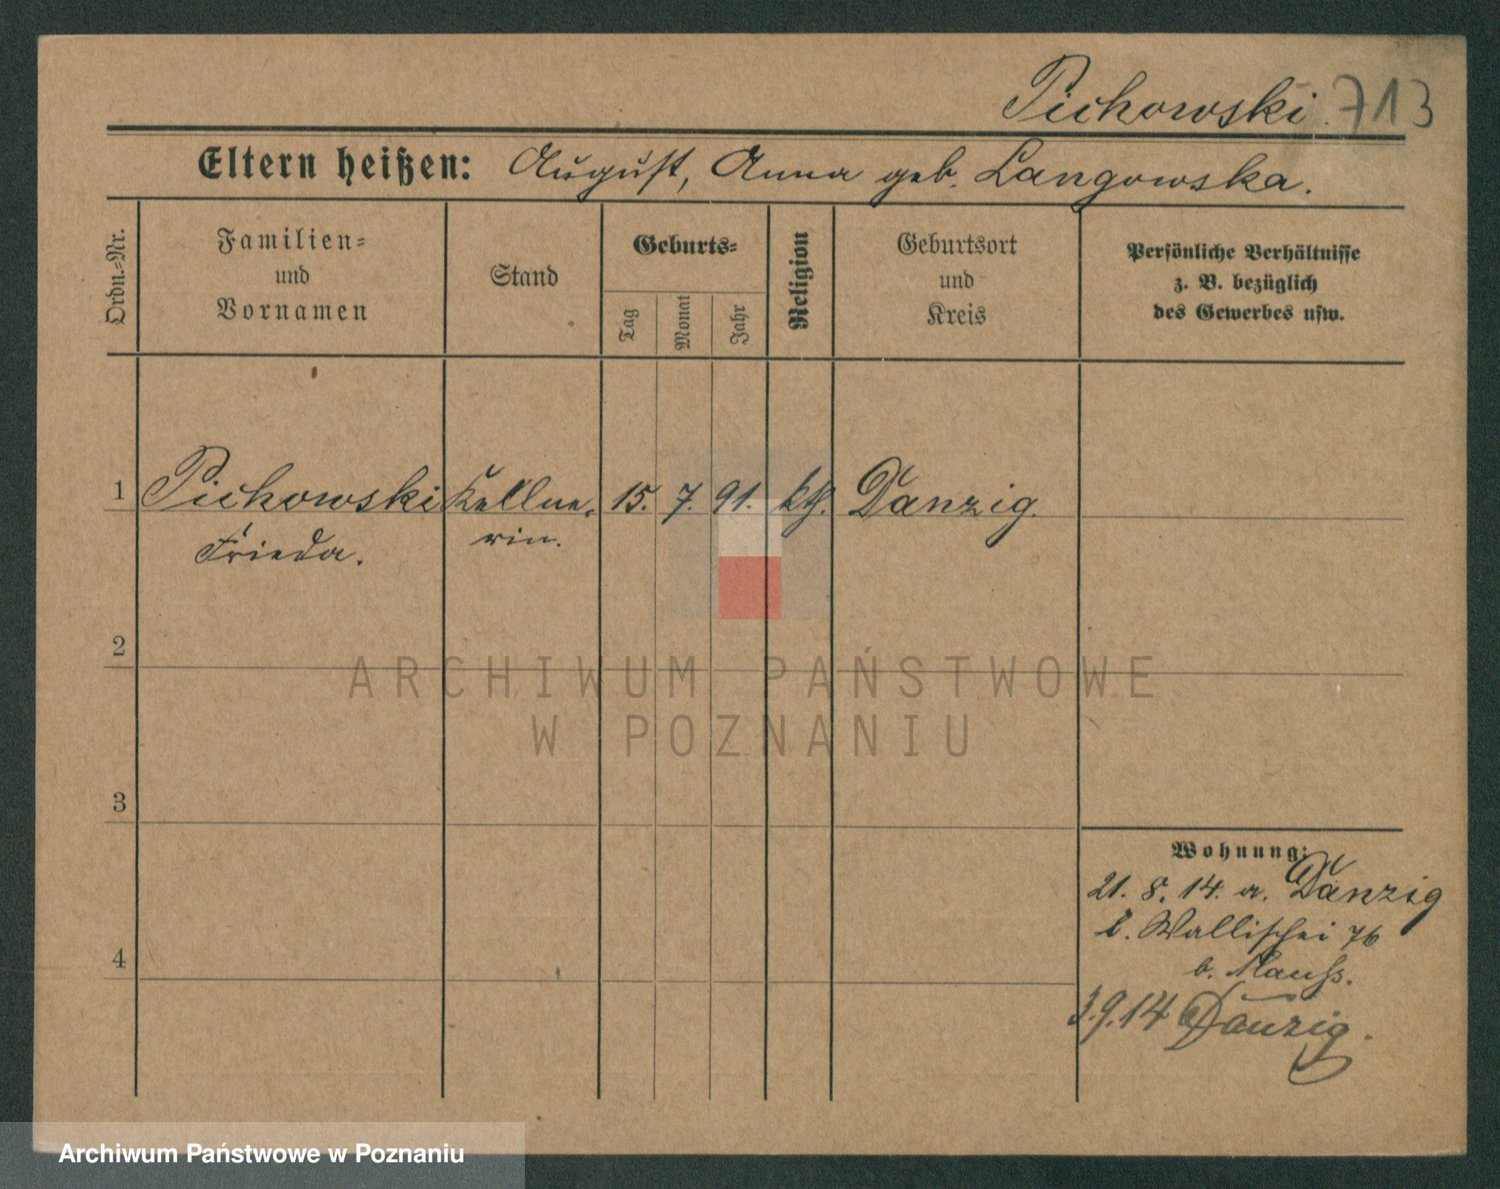 Pichowski. 713
Eltern heißen: August, Anna geb. Langowska.
Ordn.-Nr.
Familien-
und
Vornamen
Stand
Geburts-
Tag
Monat
Jahr
Religion
Geburtsort
und
Kreis
Persönliche Verhältnisse
z. B. bezüglich
des Gewerbes usw.
1 Pichowski Kellne- 15. 7. 91. kth. Danzig.
Frieda. rin.
2
ARCHIWUM PAŃSTWOWE
W POZNANIU
3
Wohnung:
21. 8. 14. a. Danzig
b. Wallischei 76
b.
4
3.9.14 Danzig.
Archiwum Państwowe w Poznaniu